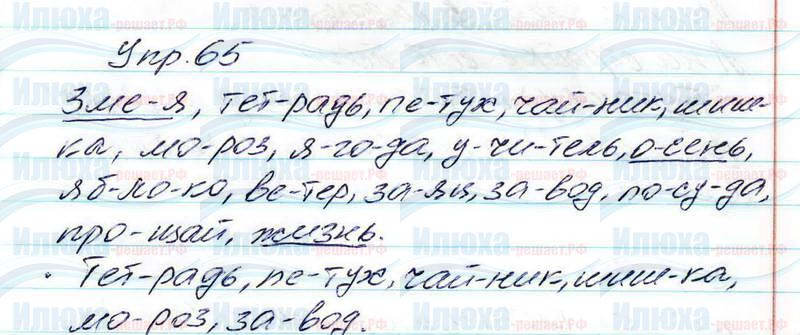 Упр. 65
Зме-я, тет-радь, пе-тух, чай-ник, шиш-
ка, мо-роз, я-го-да, у-чи-тель, о-сень,
яб-ло-ко, ве-тер, за-яц, за-вод, по-су-да,
про-щай, жизнь.
Тет-радь, пе-тух, чай-ник, шиш-ка,
мо-роз, за-вод.
Илюха -решает.РФ